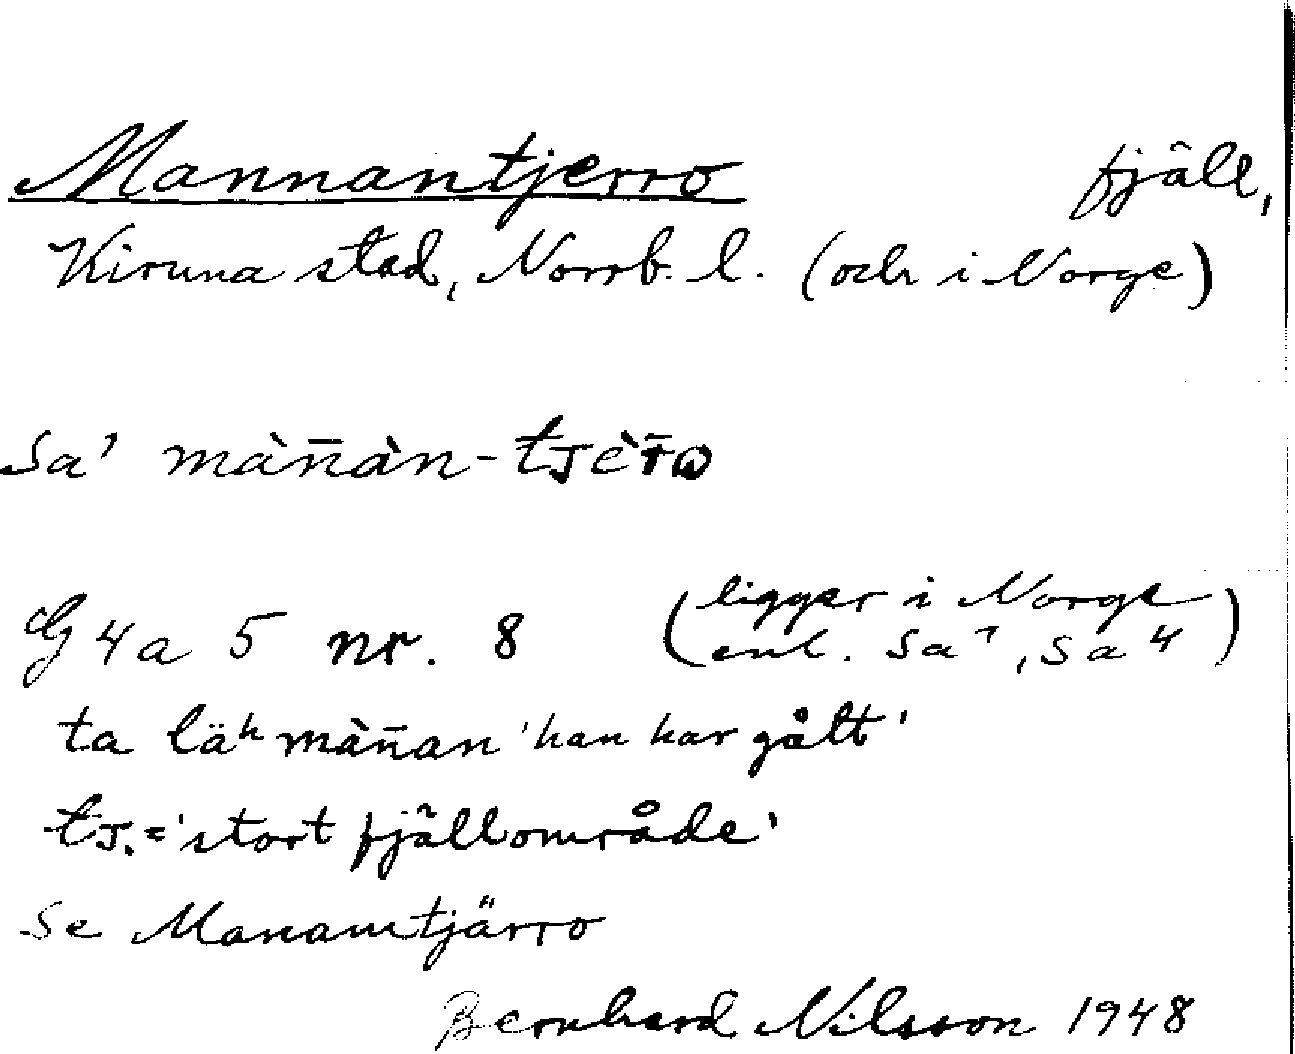 Mannantjerro fjäll,
Kiruna stad, Norrb. l. (och i Norge)
Sa¹ màn̄àn-tjèr̄ω
G 4a 5 nr. 8 (ligger i Norge
enl. Sa¹, Sa⁴)
ta läʰ màn̄an 'han har gått'
tj. = 'stort fjällområde'
Se Manamtjärro
Bernhard Nilsson 1948